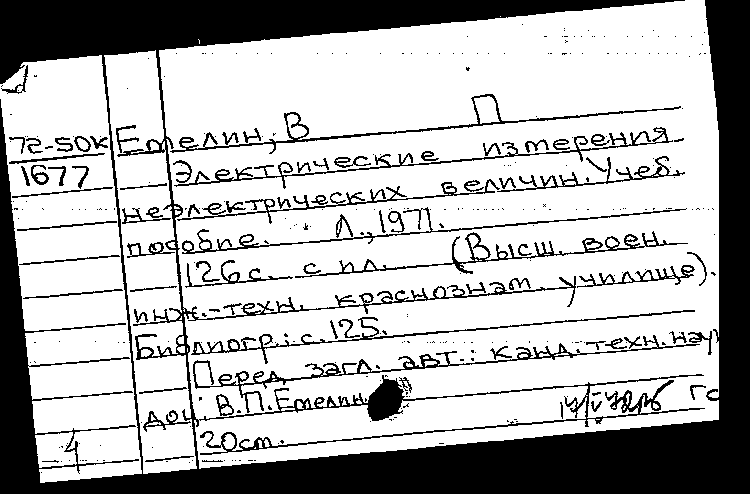 72-50К Емелин, В П
1677 Электрические измерения
неэлектрических величин. Учеб.
пособие. Л., 1971.
126 с. с ил. (Высш. воен.
инж.-техн. краснознам. училище).
Библиогр.: с. 125.
Перед загл. авт.: канд. техн. наук
доц. В.П. Емелин
20 см.
4